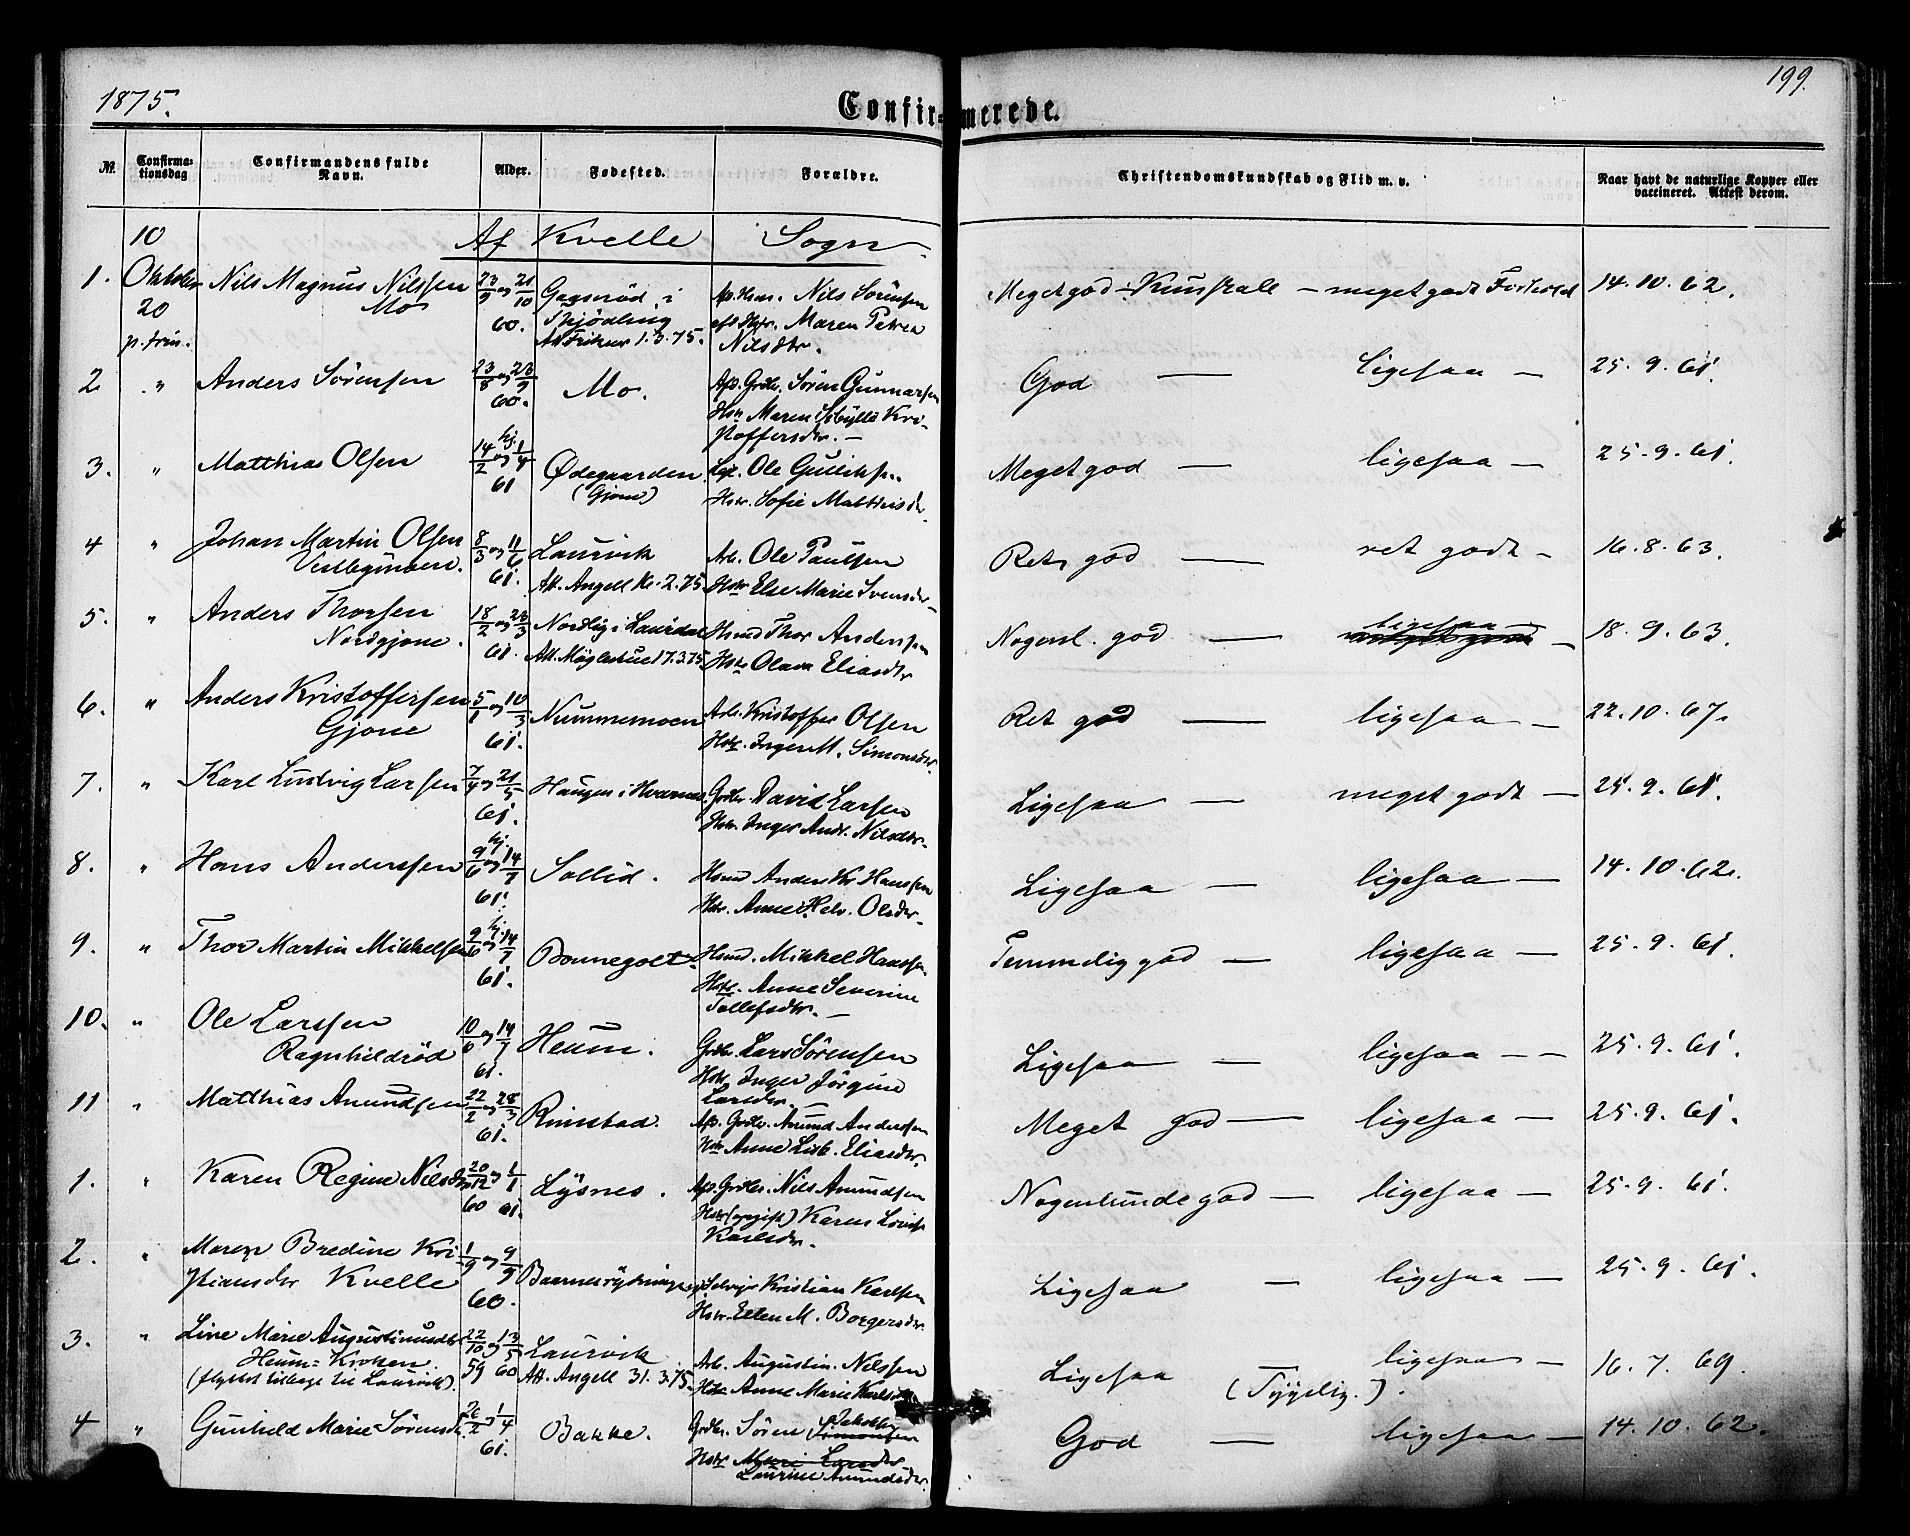 1875.
199.
Confirmerede.
№. Confirmationsdag Confirmandens fulde Navn. Alder. Fødested. Forældre. Christendomskundskab og Flid m. v. Naar havt de naturlige Kopper eller vaccineret. Attest derom.
Af Kvelle Sogn
10 Oktober 20 p. trin.
1. Nils Magnus Nilssen Mo 23/9 og 21/10 60. i Skjödling 1.3.75. Nils Sörensen Maren Petrea Nilsdtr. Meget god Kundskab – meget godt Forhold 14.10.62.
2. " Anders Sörensen 23/8 og 23/9 60. Mo. Afs. Grdbr. Sören Gunnarsen Hstr Maren Sibylla Kristoffersdr. – God — ligesaa – 25.9.61.
3. " Matthias Olsen 14/2 hj. og 1/4 61 Ødegaarden (Gjone) Ole Gulliksen Hstr. Sofie Matthisdr. Meget god — ligesaa – 25.9.61.
4 " Johan Martin Olsen 8/3 og 11/6 61. Laurvik Att. Angell 2.75 Arb. Ole Paulsen Hstr Else Marie Svensdr. Ret god — ret godt – 16.8.63.
5. " Anders Thorsen Nordgjone. 18/2 og 23/3 61. Nordlig i Laurdal Att. Møglestue 17.3.75. Hsmd Thor Anderssen Hstr Olava Eliasdtr Nogenl. god — ligesaa – 18.9.63.
6. " Anders Kristoffersen Gjone 5/1 og 10/3 61. Nummemoen Arb. Kristoffer Olsen Hstr. Inger M. Simonsdr. Ret god — ligesaa – 22.10.67.
7. " Karl Ludvig Larsen 7/4 og 21/5 61. Haugen i Hvarnes Grdbr David Larsen Hstr. Inger Andr. Nilsdtr. Ligesaa — meget godt – 25.9.61.
8. " Hans Anderssen 9/6 hj. og 14/7 61. Sollid. Hsmd Anders Kr. Hanssen Hstr. Anne Helv. Olsdtr. Ligesaa — ligesaa – 14.10.62.
9. " Thor Martin Mikkelsen 9/6 hj. og 14/7 61. Bonnegolt. Hsmd. Mikkel Hanssen. Hstr. Anne Severine Tollefsdtr. – Temmelig god — ligesaa – 25.9.61.
10. " Ole Larssen Ragnhildrød 10/6 og 14/7 61. Heum. Grdbr. Lars Sørensen Hstr Inger Jörgine Larsdtr. Ligesaa — ligesaa – – 25.9.61.
11 " Matthias Amundsen 22/2 og 28/3 61. Rimstad. Afs. Grdbr. Amund Anderssen Hstr Anne Lisb. Eliasdtr. Meget god — ligesaa – 25.9.61.
1. " Karen Regine Nilsdtr 20/12 60 og 1/1 61. Lysnes. Afs. Grdbr. Nils Amundsen Hstr (opgift) Karen Lovise Karlsdr. Nogenlunde god — ligesaa – 25.9.61.
2. " Maren Bredine Kristiansdtr Kvelle 1/9 og 9/9 60. Kristian Karlsen Hstr. Ellen M. Borgersdr. Ligesaa — ligesaa – 25.9.61.
3. " Line Marie Augustinusdtr Heum-Kroken. (flyttet tilbage til Laurvik). 22/10 59 og 13/5 60 Laurvik Att. Angell 31.3.75. Arb. Augustin. Nilssen Hstr Anne Marie Karlsdtr Ligesaa ligesaa – 16.7.69.
4 " Gunhild Marie Sörensd. 26/2 og 1/4 61. Bakke. Grdbr. Sören Jakobsen Simonsen Hstr Mari Larsdtr Laurine Amundsdr. God — ligesaa – 14.10.62.